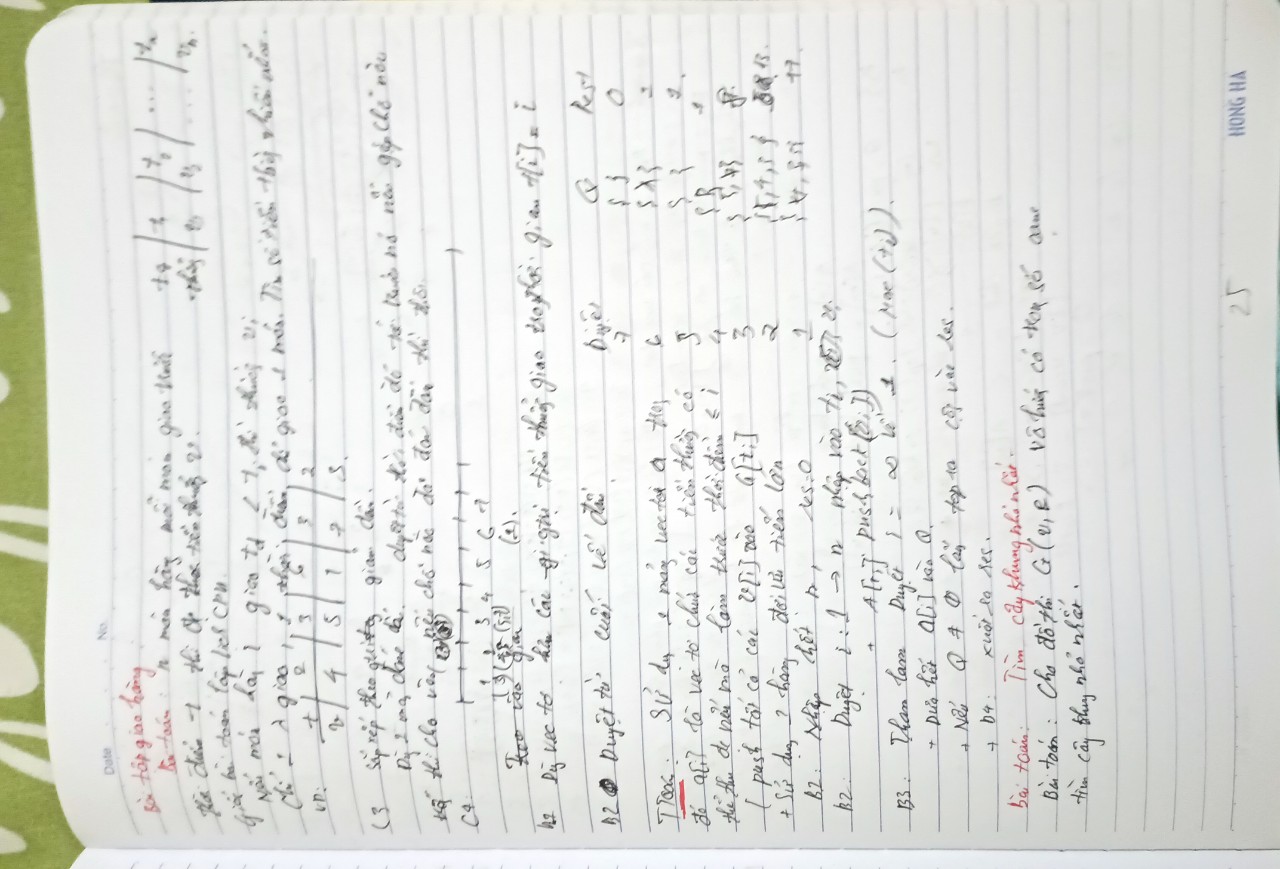 Date No.
Bài tập giao hàng
Bài toán: n món hàng mỗi món giao trước
thời điểm t thì đc thêm tiền thưởng v.
t | t₁ | t₂ | ... | tₙ
thưởng | v₁ | v₂ | .... | vₙ
Giống bài toán lập lịch CPU
Nếu món hàng i giao td ≤ tᵢ thì thưởng vᵢ
Chỉ 1 giao, 1 thời điểm chỉ giao 1 món. Tìm số tiền thưởng nhiều nhất.
VD: t | 2 | 3 | 6 | 3 | 2
v | 4 | 5 | 1 | 7 | 5
C3 Sắp xếp theo giảm dần.
Dùng 1 mảng đánh dấu. duyệt từ thời điểm đó về trước nó nếu gặp chỗ nào
thì cho vào, nếu chỗ nào đã đánh dấu thì thôi.
C4:
1 2 3 4 5 6 7
(1).
B1 Dùng vec tơ các giá trị tiền thưởng giao trong thời gian t[i] = i
B2 Duyệt từ cuối về đầu
Duyệt Q Res
7 { } 0
Tổng: Sử dụng 1 mảng vectơ a trong
6 { 1 } 1
đó a[i] là vec tơ chứa các tiền thưởng có
5 { } 1
thể thu đc nếu mà làm trước thời điểm ≤ i
4 { } 1
( push tất cả các v[i] vào a[tᵢ]
3 { 5, 7 } 8
+ Sử dụng 1 hàng đợi ưu tiên lớn
2 { 5, 4, 5 } 13
B1: Nhập hết n, res=0
1 { 4, 5 }
B2: Duyệt i: 1 → n nhập vào tᵢ, vᵢ
+ A[tᵢ] push back(vᵢ)
B3: Tham lam Duyệt i = ∞ về 1. (Max(tᵢ)).
+ Đưa hết a[i] vào Q.
+ Nếu Q ≠ ∅ lấy top ra cộng vào res.
+ B4: xuất ra res.
bài toán: Tìm cây khung nhỏ nhất.
Bài toán: Cho đồ thị G(V,E) vô hướng có trọng số
tìm cây khung nhỏ nhất.
25
HONG HA